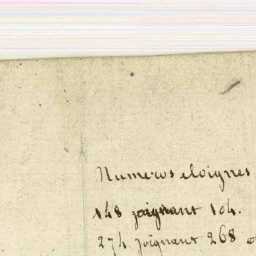 Numeros eloignes
148 joignant 104.
274 joignant 268